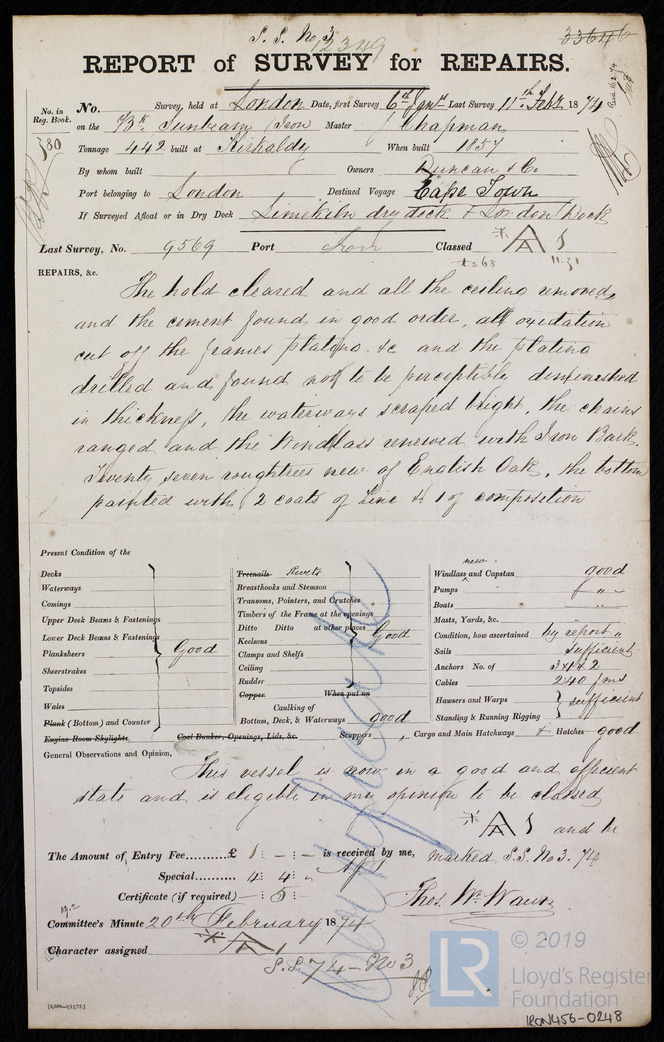 S. S. No 3
12349
33646
REPORT of SURVEY for REPAIRS.
No. in Reg. Book.
380
No. Survey, held at London Date, first Survey 6th Jany Last Survey 11th Feb. 1874
on the Bk Sunbeam (Iron Master J Chapman
Tonnage 442 built at Kirkaldy When built 1857
By whom built Owners Duncan & Co.
Port belonging to London Destined Voyage Cape Town
If Surveyed Afloat or in Dry Dock Limekiln dry dock & London Dock
Last Survey, No. 9569 Port Iron Classed A 1
4.5.68 11.71
REPAIRS, &c.
The hold cleared and all the ceiling removed
and the cement found in good order, all oxidation
cut off the frames plating &c and the plating
drilled and found not to be perceptibly diminished
in thickness, the waterways scraped bright, the chains
ranged and the Windlass renewed with Iron Bark.
Twenty seven roughtrees new of English Oak, the bottom
painted with 2 coats of Zinc & 1 of composition
Present Condition of the
Decks
Waterways
Comings
Upper Deck Beams & Fastenings
Lower Deck Beams & Fastenings
Planksheers Good
Sheerstrakes
Topsides
Wales
Plank (Bottom) and Counter
Engine Room Skylights Coal Bunker, Openings, Lids, &c. Scuppers, Cargo and Main Hatchways & Hatches good
Treenails Rivets
Breasthooks and Stemson
Transoms, Pointers, and Crutches
Timbers of the Frame at the openings
Ditto Ditto at other places Good
Keelsons
Clamps and Shelfs
Ceiling
Rudder
Copper When put on
Caulking of
Bottom, Deck, & Waterways good
new
Windlass and Capstan good
Pumps " "
Boats "
Masts, Yards, &c. "
Condition, how ascertained by report "
Sails sufficient
Anchors No. of 3 & 1 & 2
Cables 240 fms
Hawsers and Warps sufficient
Standing & Running Rigging
General Observations and Opinion,
This vessel is now in a good and efficient
state and is eligible in my opinion to be classed
A 1 and be
The Amount of Entry Fee..........£ 1 : - : - is received by me, marked S.S. No 3. 74
Special.......... 4 : 4 : "
Certificate (if required) - : 5 : -
Thos. Wm. Wawn
Committee's Minute 20th February 1874
Character assigned A 1
S.S. 74 - No 3
© 2019
LR
Lloyd's Register
Foundation
IRON456-0248